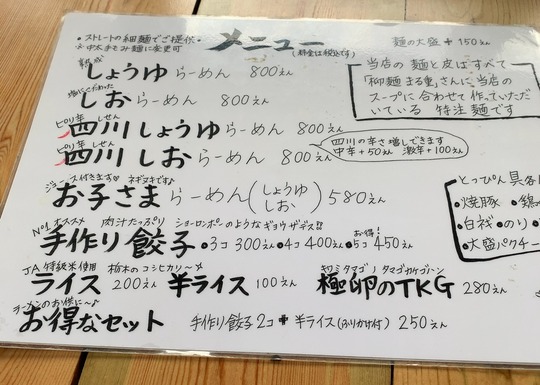 ・ストレートの細麺でご提供・
※中太ちぢみ麺に変更可
メニュー
(料金は税込です)
麺の大盛 + 150えん
熟成 しょうゆらーめん 800えん
塩にこだわった しおらーめん 800えん
ピリ辛 しせん 四川しょうゆらーめん 800えん
ピリ辛 しせん 四川しおらーめん 800えん
四川の辛さ増しできます
中辛+50えん 激辛+100えん
当店の麺と皮はすべて
「柳麺 まる重」さんに当店の
スープに合わせて作っていただ
いている 特注麺です
ジュース付きます♡ ネギヌキです♪
お子さまらーめん(しょうゆ しお) 580えん
No.1オススメ 肉汁たっぷり ショーロンポーのようなギョウザデス!!
手作り餃子 ・3コ 300えん ・4コ 400えん お得! ・5コ 450えん
JA特級米使用 栃木のコシヒカリ〜♪
ライス 200えん 半ライス 100えん
キワミタマゴノ タマゴカケゴハン
極卵のTKG 280えん
ラーメンのお供に〜♪
お得なセット 手作り餃子2コ + 半ライス(ふりかけ付) 250えん
とっぴん具各
・焼豚
・白ネギ ・のり
・大盛パクチー